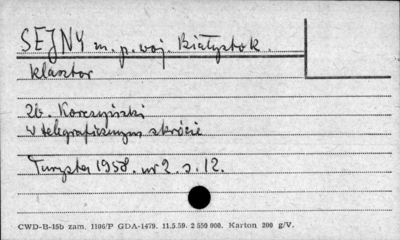 SEJNY m. p. woj. Białystok.
klasztor
Zb. Korczyński
w telegraficznym skrócie
Turysta 1958. nr 2. s. 12.
CWD-B-15b zam. 1106/P GDA-1479. 11.5.59. 2 550 000. Karton 200 g/V.